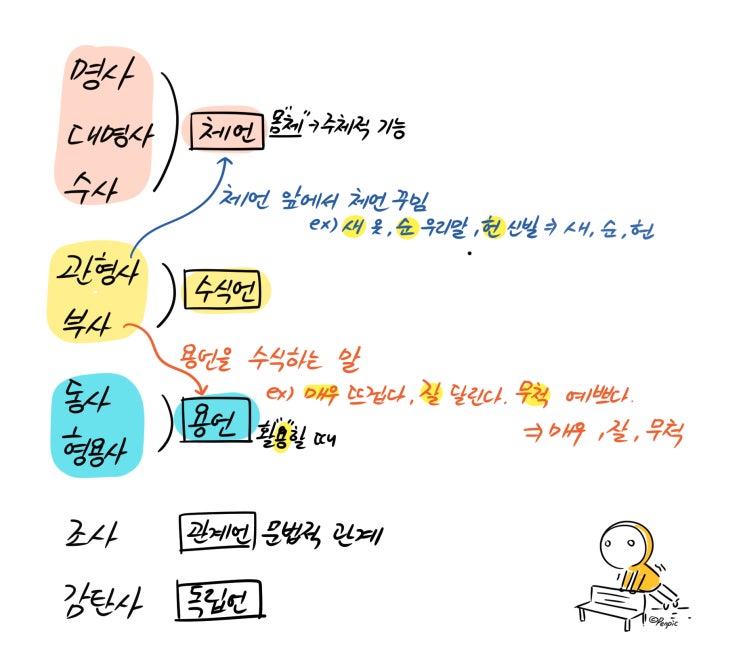 명사
대명사
수사
체언 "몸체" → 주체적 기능
체언 앞에서 체언 꾸밈
ex) 새 옷, 순 우리말, 헌 신발 ⇒ 새, 순, 헌
관형사
부사
수식언
용언을 수식하는 말
ex) 매우 뜨겁다, 잘 달린다. 무척 예쁘다.
⇒ 매우, 잘, 무척
동사
형용사
용언 활"용"할 때
조사 관계언 문법적 관계
감탄사 독립언
©Penpic